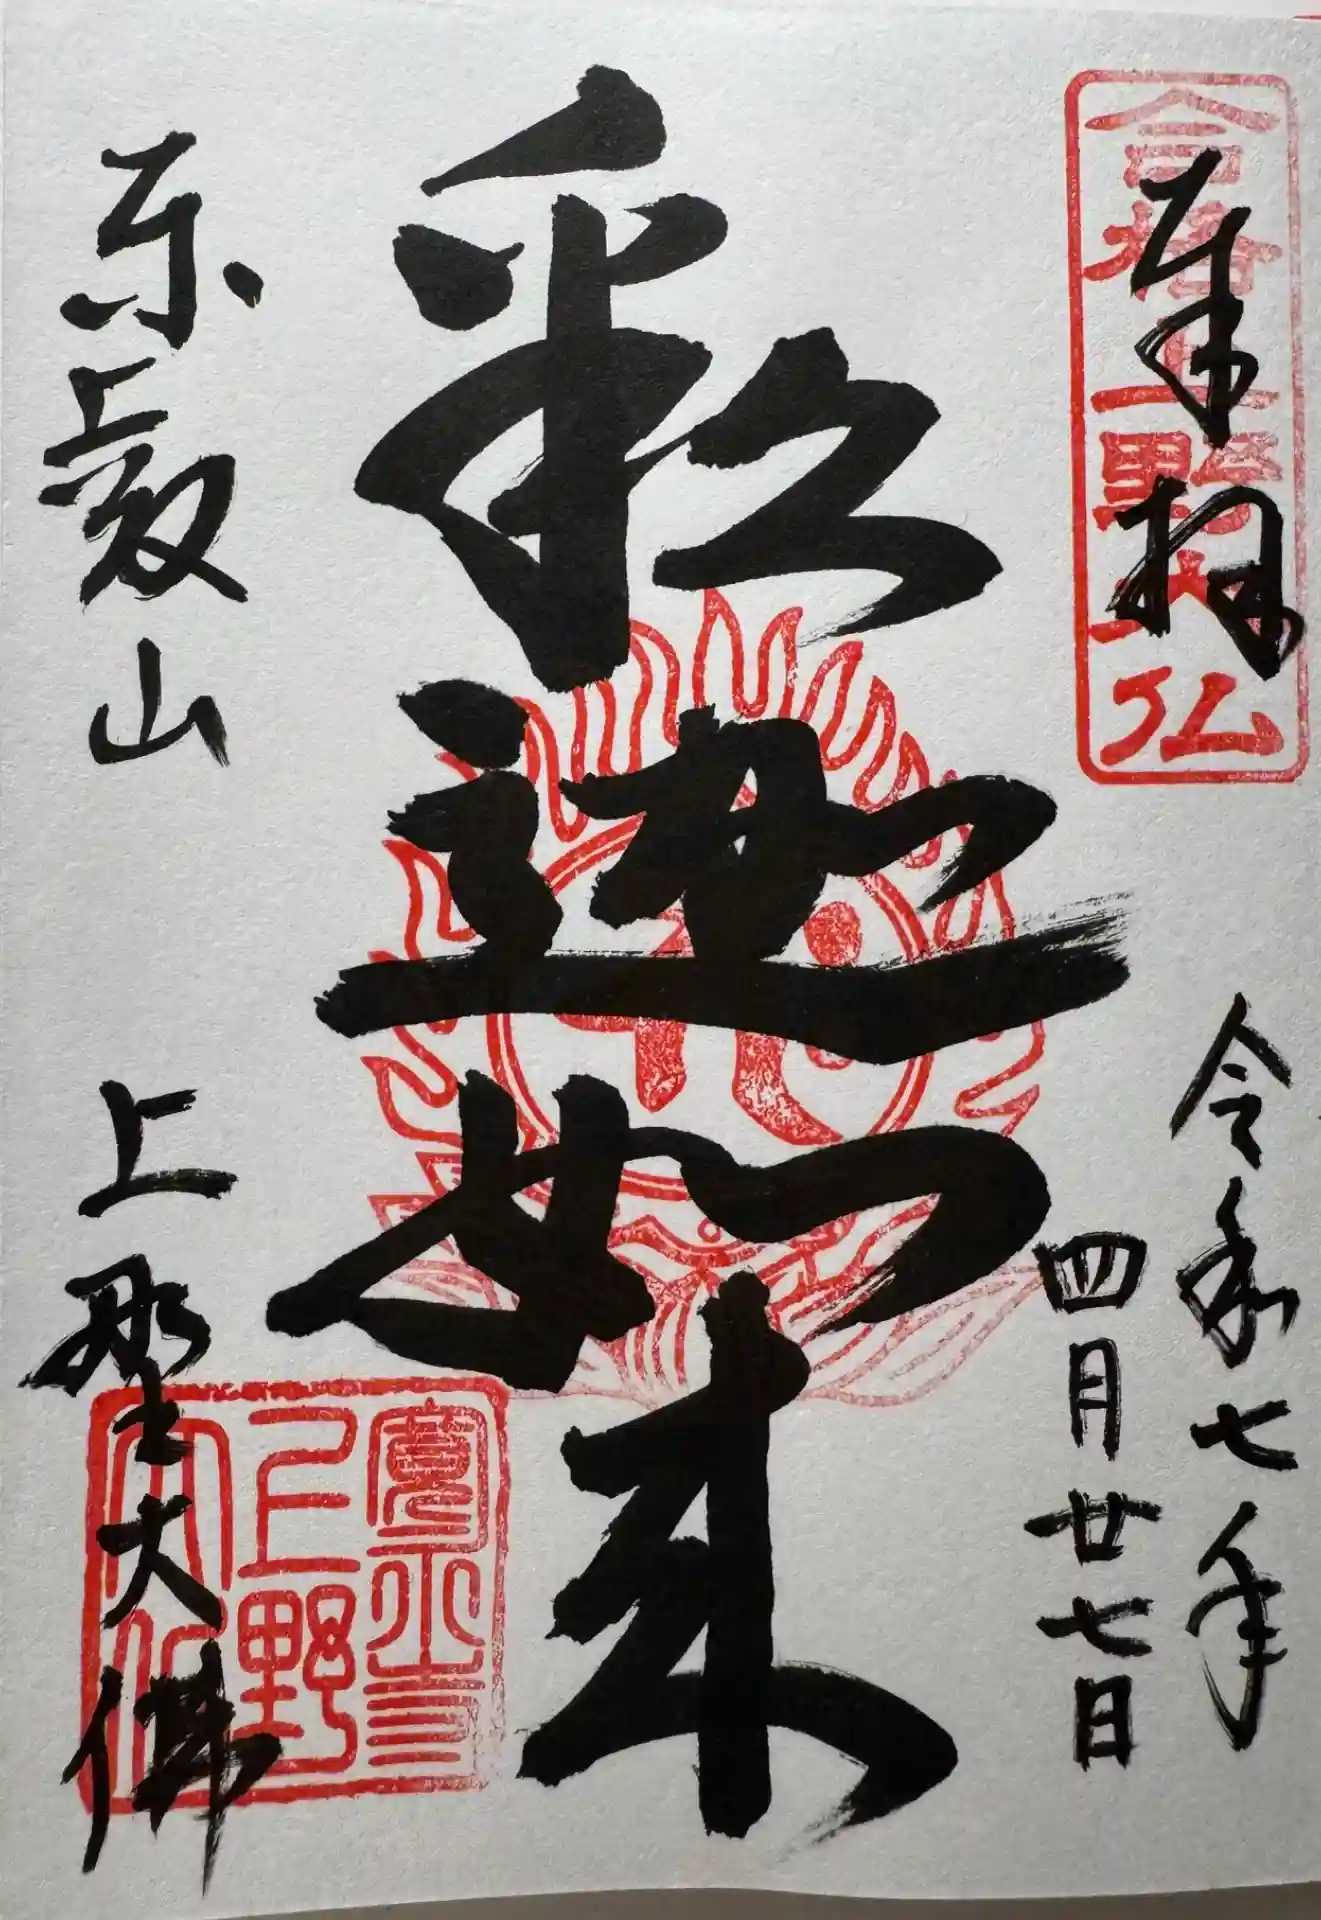 奉拝
合格上野大仏
令和七年
四月廿七日
釈迦如来
東叡山
上野大佛
寛永寺
上野
大仏